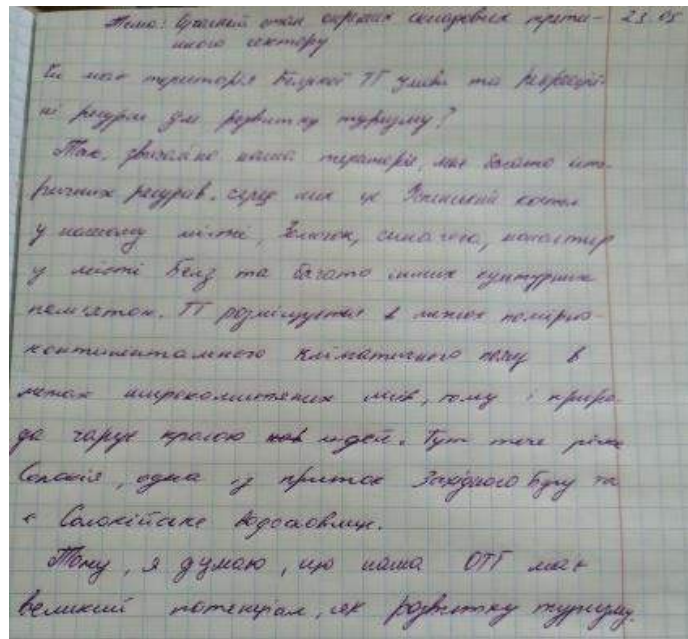 Тема: Сучасний стан окремих складових третин- 23.05
ного сектору
Чи має територія Белзької ТГ умови та рекреацій-
ні ресурси для розвитку туризму?
Так, звичайно наша територія має багато істо-
ричних ресурсів. серед них це Успенський костел
у нашому місті, Замочок, синагога, монастир
у місті Белз та багато інших культурних
пам'яток. ТГ розміщується в межах помірно-
континентального кліматичного поясу в
межах широколистяних лісів, тому і приро-
да чарує красою людей. Тут тече річка
Солокія, одна із приток Західного Бугу та
є Солокійське водосховище.
Тому, я думаю, що наша ОТГ має
великий потенціал, як розвитку туризму.